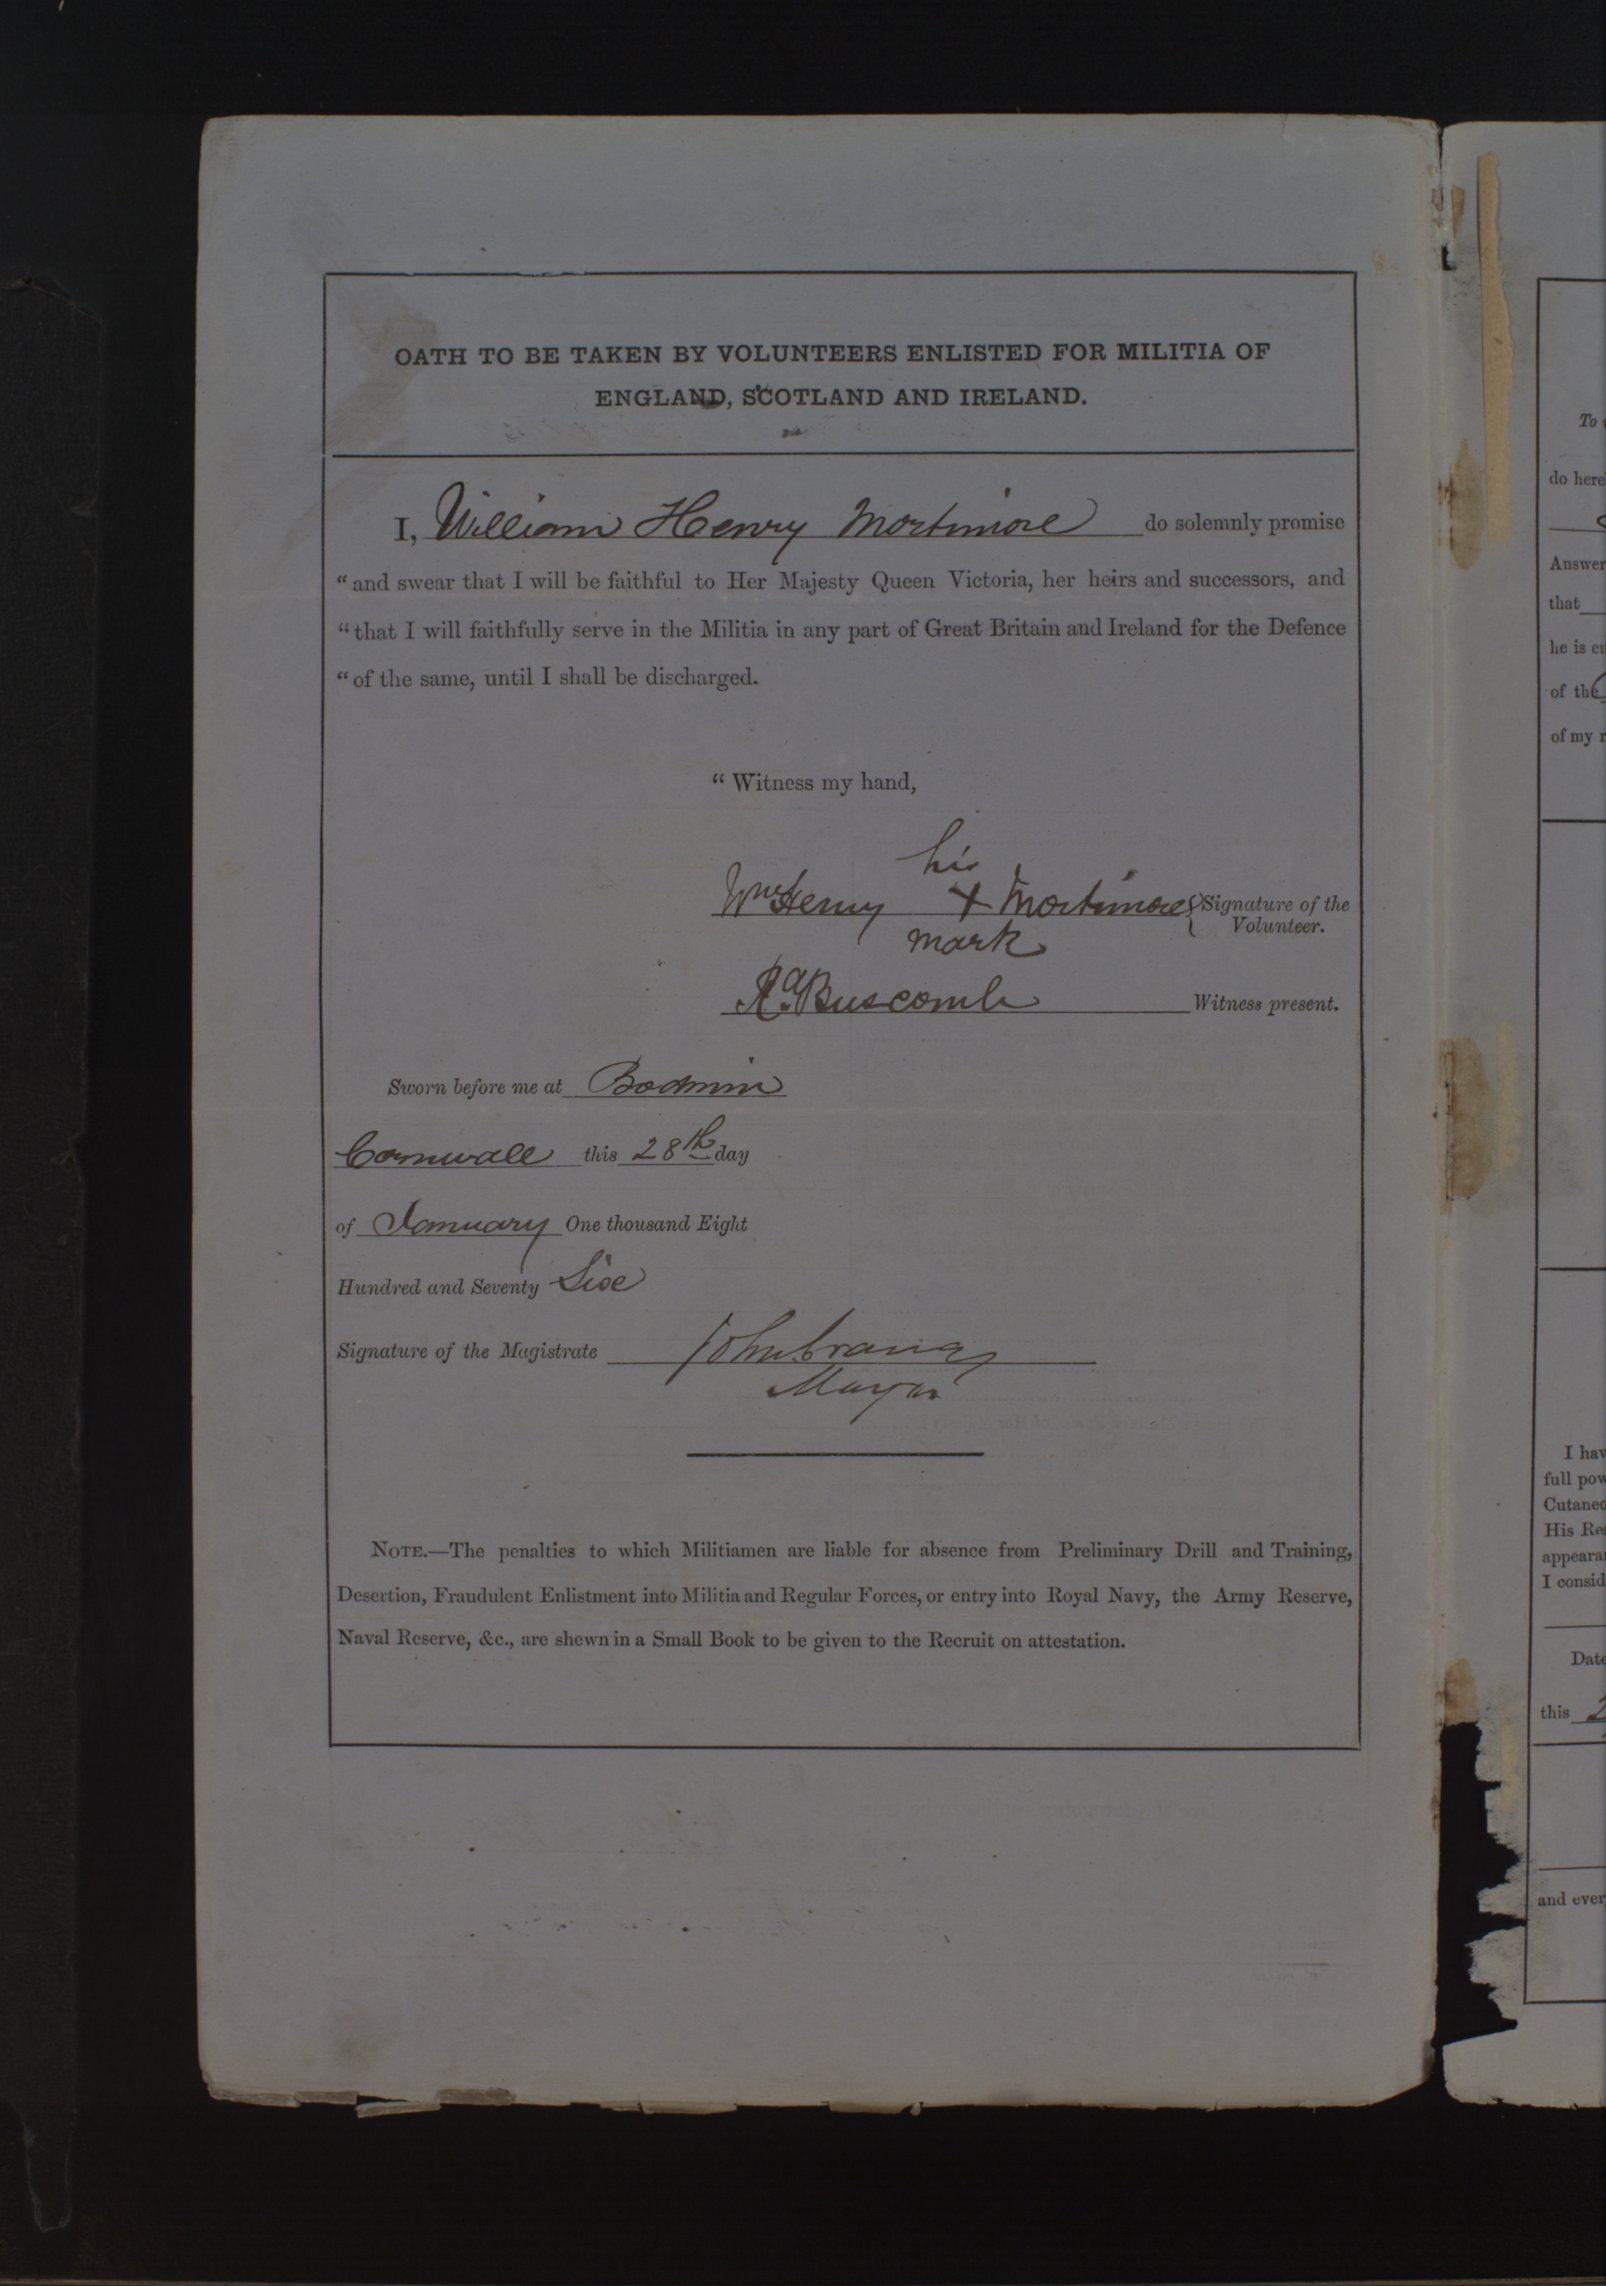 OATH TO BE TAKEN BY VOLUNTEERS ENLISTED FOR MILITIA OF
ENGLAND, SCOTLAND AND IRELAND.
I, William Henry Mortimore do solemnly promise
“and swear that I will be faithful to Her Majesty Queen Victoria, her heirs and successors, and
“that I will faithfully serve in the Militia in any part of Great Britain and Ireland for the Defence
“of the same, until I shall be discharged.
“Witness my hand,
his
Wm Henry X Mortimore Signature of the
Volunteer.
mark
Buscomb Witness present.
Sworn before me at Bodmin
Cornwall this 28th day
of January One thousand Eight
Hundred and Seventy Six
Signature of the Magistrate John
Mayor
NOTE.—The penalties to which Militiamen are liable for absence from Preliminary Drill and Training,
Desertion, Fraudulent Enlistment into Militia and Regular Forces, or entry into Royal Navy, the Army Reserve,
Naval Reserve, &c., are shewn in a Small Book to be given to the Recruit on attestation.
To
do here
Answer
that
he is
of the
of my
I hav
full pow
Cutaneo
His Res
appeara
I consid
Date
this 2
and ever